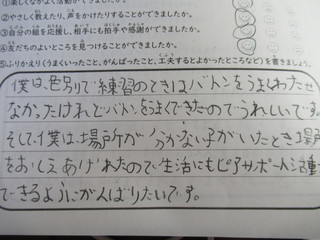 ①楽しくなかよく活動ができましたか。
②やさしく教えたり、声をかけたりすることができましたか。
③自分の組を応援し、相手にも拍手や感謝ができましたか。
④友だちのよいところを見つけることができましたか。
⑤ふりかえり（うまくいったこと、がんばったこと、工夫するとよかったところなど）を書きましょう。
僕は、色別で練習のときはバトンをうまくわたせ
なかったけれどバトンをうまくできたのでうれしいです。
そして、僕は、場所が分かない子がいたとき場所
をおしえてあげれたので生活にもピアサポート活動
できるようにがんばりたいです。